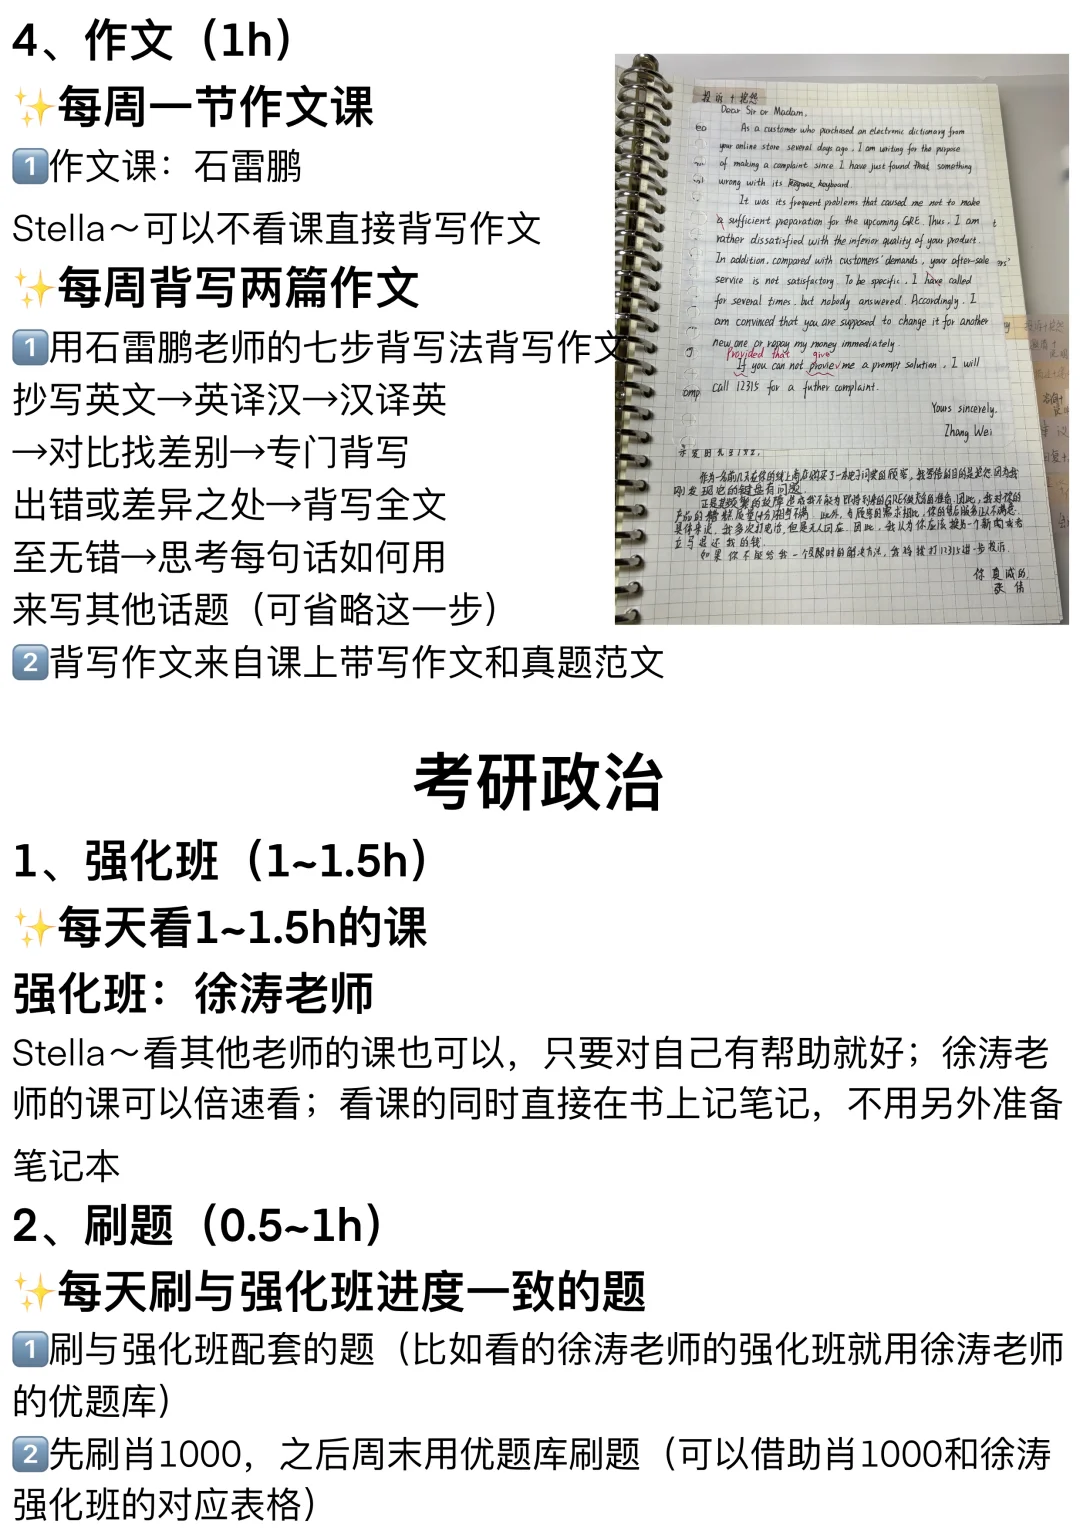 4、作文（1h）
✨每周一节作文课
1️⃣作文课：石雷鹏
Stella～可以不看课直接背写作文
✨每周背写两篇作文
1️⃣用石雷鹏老师的七步背写法背写作文
抄写英文→英译汉→汉译英
→对比找差别→专门背写
出错或差异之处→背写全文
至无错→思考每句话如何用
来写其他话题（可省略这一步）
2️⃣背写作文来自课上带写作文和真题范文
投诉+抱怨
Dear Sir or Madam,
As a customer who purchased an electronic dictionary from
your online store several days ago, I am writing for the purpose
of making a complaint since I have just found that something
wrong with its keyboard.
It was its frequent problems that caused me not to make
a sufficient preparation for the upcoming GRE. Thus, I am
rather dissatisfied with the inferior quality of your product.
In addition, compared with customers' demands, your after-sale
service is not satisfactory. To be specific, I have called
for several times, but nobody answered. Accordingly, I
am convinced that you are supposed to change it for another
new one or repay my money immediately.
Provided that give
If you can not provie me a prompt solution, I will
call 12315 for a futher complaint.
Yours sincerely,
Zhang Wei
作为一名前几天在你的线上商店购买了一本电子词典的顾客，我写信的目的是抱怨因为我
刚发现它的键盘有问题.
具体来说，我多次打电话，但是无人回应. 因此，我认为你应该换另一个新的或者
立马退还我的钱.
如果你不能给我一个及时的解决方法，我将拨打12315进一步投诉.
你真诚的
张伟
考研政治
1、强化班（1~1.5h）
✨每天看1~1.5h的课
强化班：徐涛老师
Stella～看其他老师的课也可以，只要对自己有帮助就好；徐涛老
师的课可以倍速看；看课的同时直接在书上记笔记，不用另外准备
笔记本
2、刷题（0.5~1h）
✨每天刷与强化班进度一致的题
1️⃣刷与强化班配套的题（比如看的徐涛老师的强化班就用徐涛老师
的优题库）
2️⃣先刷肖1000，之后周末用优题库刷题（可以借助肖1000和徐涛
强化班的对应表格）